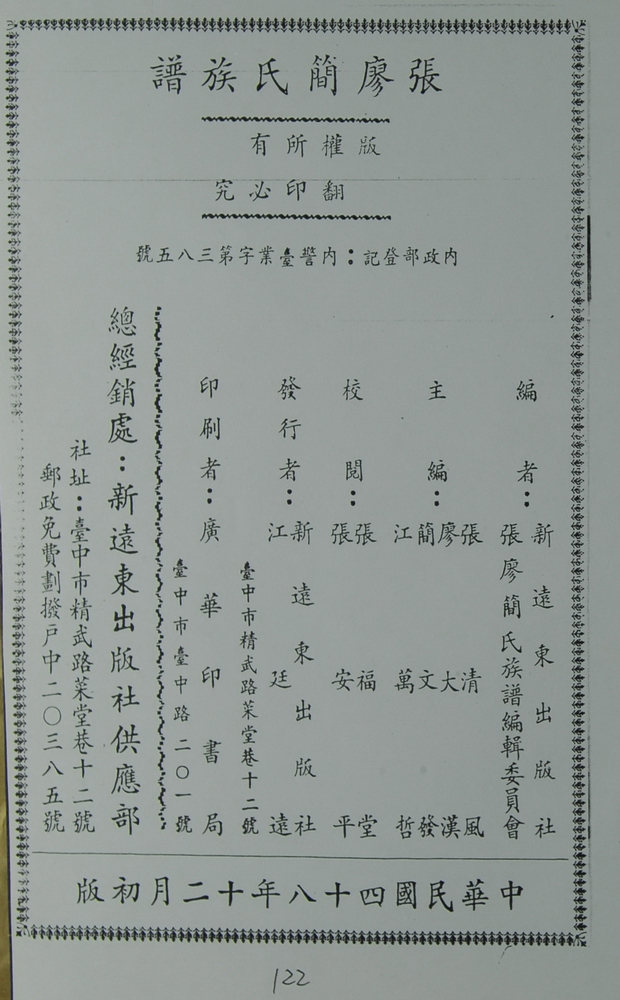 張廖簡氏族譜
版權所有
翻印必究
內政部登記：內警臺業字第三八五號
編者：新遠東出版社
張廖簡氏族譜編輯委員會
主編：張清風
廖大漢
簡文發
江萬哲
校閱：張福堂
張安平
發行者：新遠東出版社
江廷遠
臺中市精武路菜堂巷十二號
印刷者：廣華印書局
臺中市臺中路二〇一號
總經銷處：新遠東出版社供應部
社址：臺中市精武路菜堂巷十二號
郵政免費劃撥戶中二〇三八五號
中華民國四十八年十二月初版
122